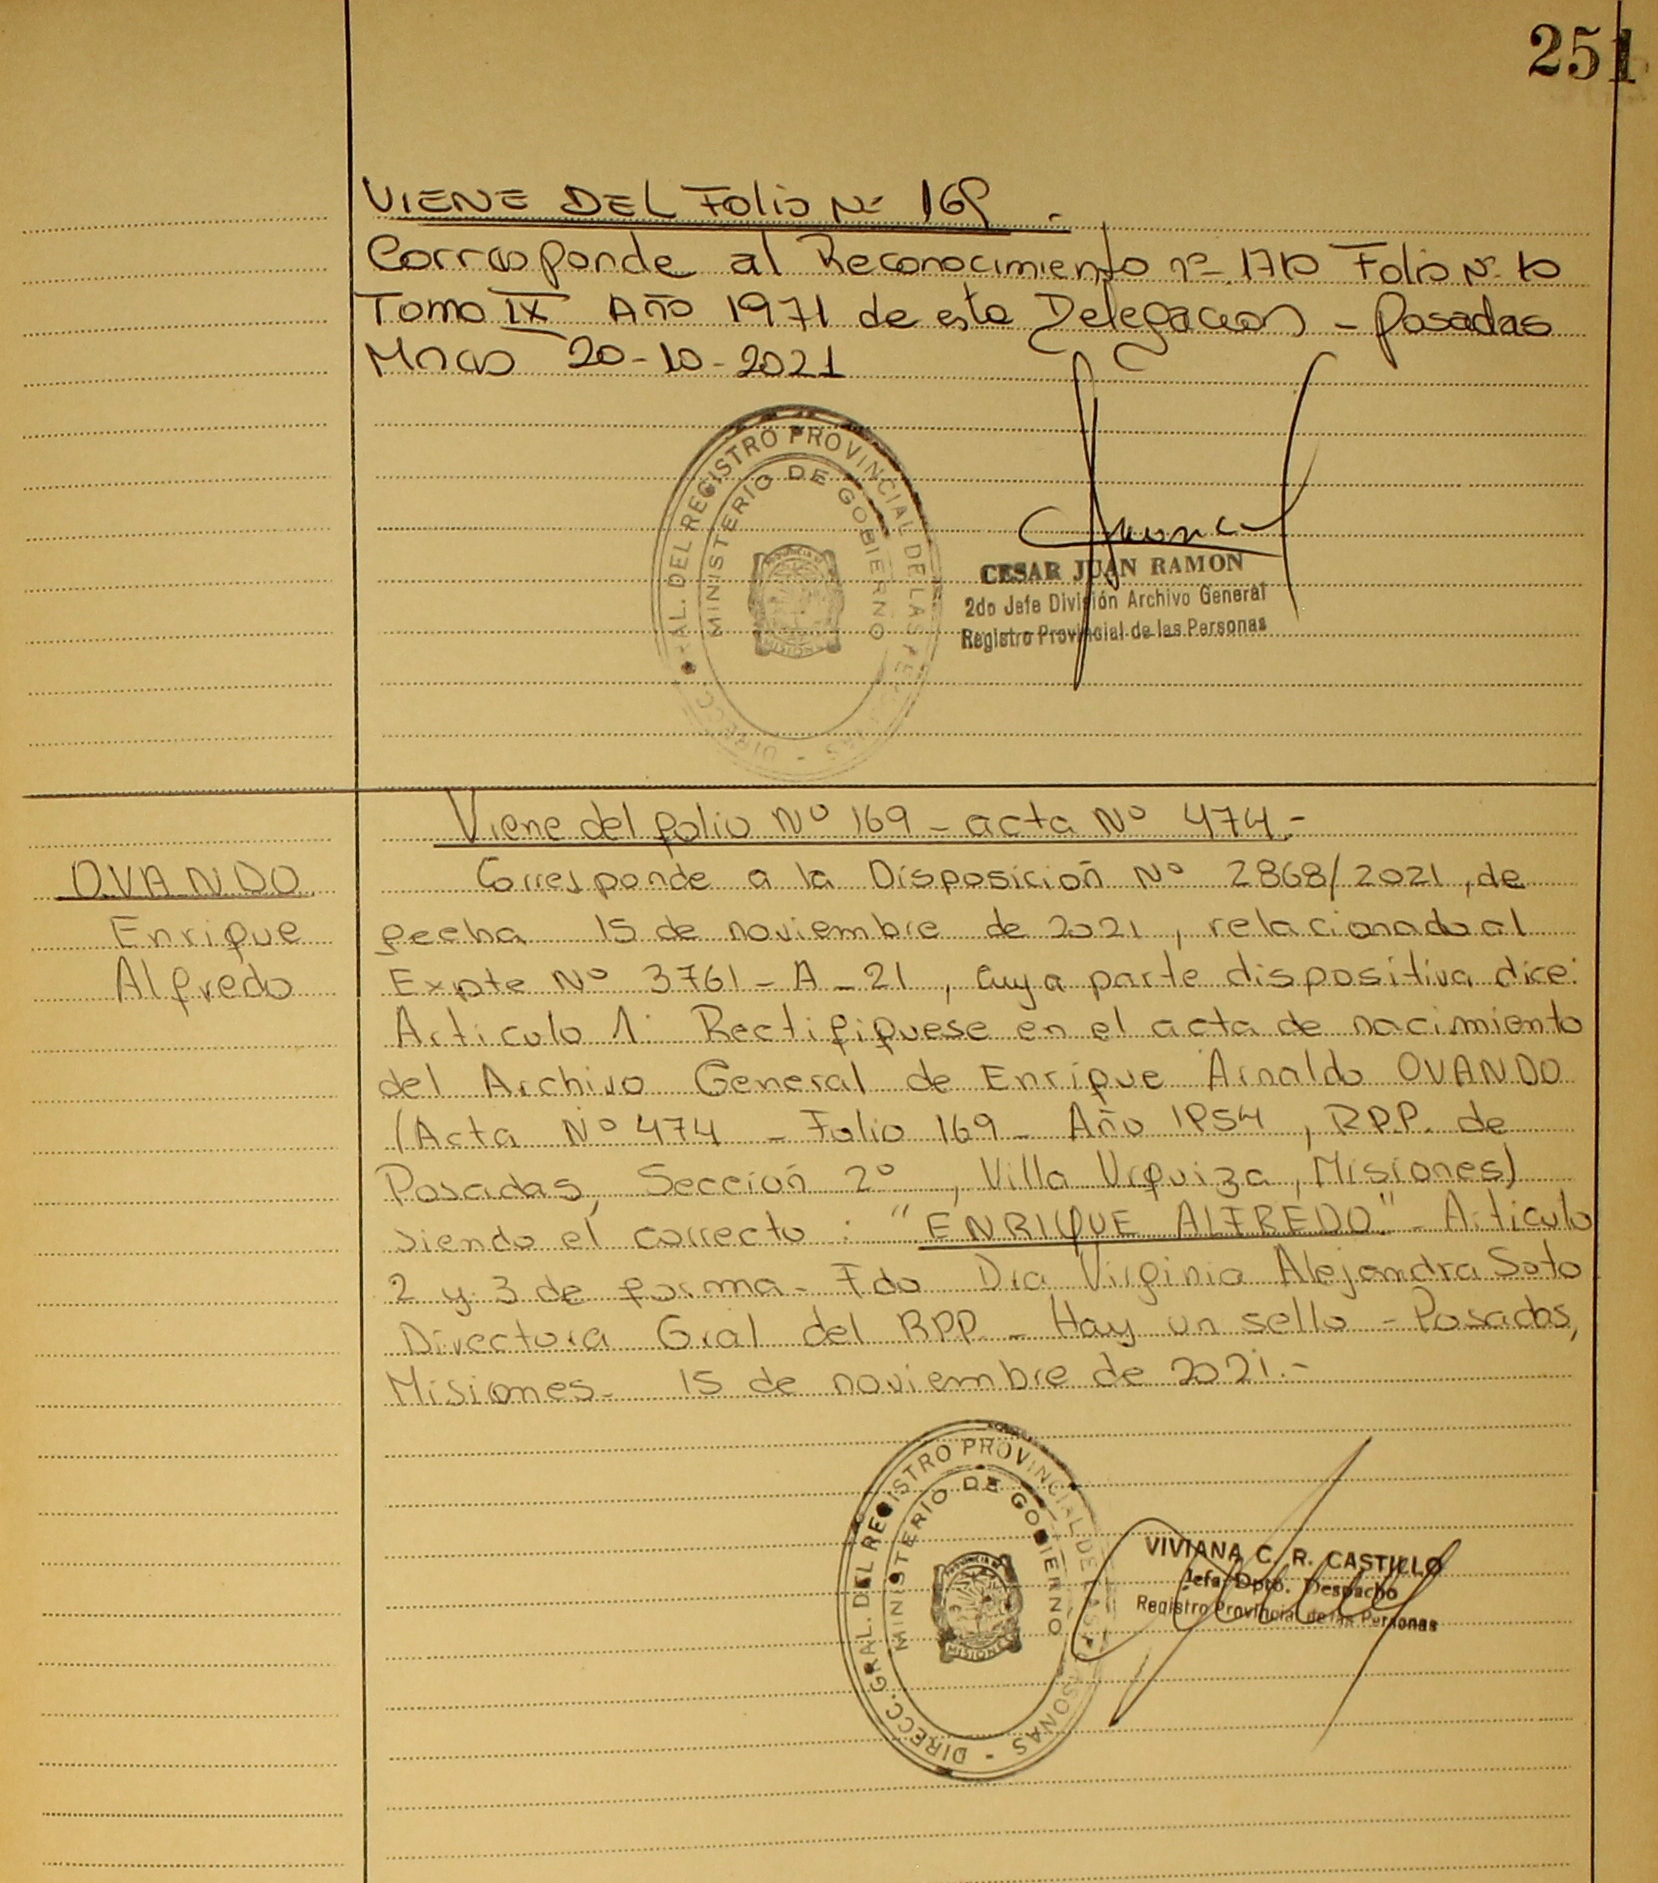 251
VIENE DEL Folio Nº 169.
Corresponde al Reconocimiento nº 1710 Folio Nº 10
Tomo IX Año 1971 de esta Delegacion - Posadas
Mnes 20-10-2021
DIRECC. GRAL. DEL REGISTRO PROVINCIAL DE LAS PERSONAS -
MINISTERIO DE GOBIERNO
CESAR JUAN RAMON
2do Jefe División Archivo General
Registro Provincial de las Personas
Viene del folio Nº 169 - acta Nº 474.-
OVANDO
Enrique
Alfredo
Corresponde a la Disposición Nº 2868/2021, de
fecha 15 de noviembre de 2021, relacionado al
Expte Nº 3761 - A - 21, cuya parte dispositiva dice:
Articulo 1: Rectifiquese en el acta de nacimiento
del Archivo General de Enrique Arnaldo OVANDO
(Acta Nº 474 - Folio 169 - Año 1954, RPP. de
Posadas, Sección 2º, Villa Urquiza, Misiones)
siendo el correcto : "ENRIQUE ALFREDO" - Articulo
2 y 3 de forma - Fdo Dra Virginia Alejandra Soto
Directora Gral del RPP - Hay un sello - Posadas,
Misiones - 15 de noviembre de 2021.-
DIRECC. GRAL. DEL REGISTRO PROVINCIAL DE LAS PERSONAS -
MINISTERIO DE GOBIERNO
PROVINCIA DE
MISIONES
VIVIANA C. R. CASTILLO
Jefa Dpto. Despacho
Registro Provincial de las Personas